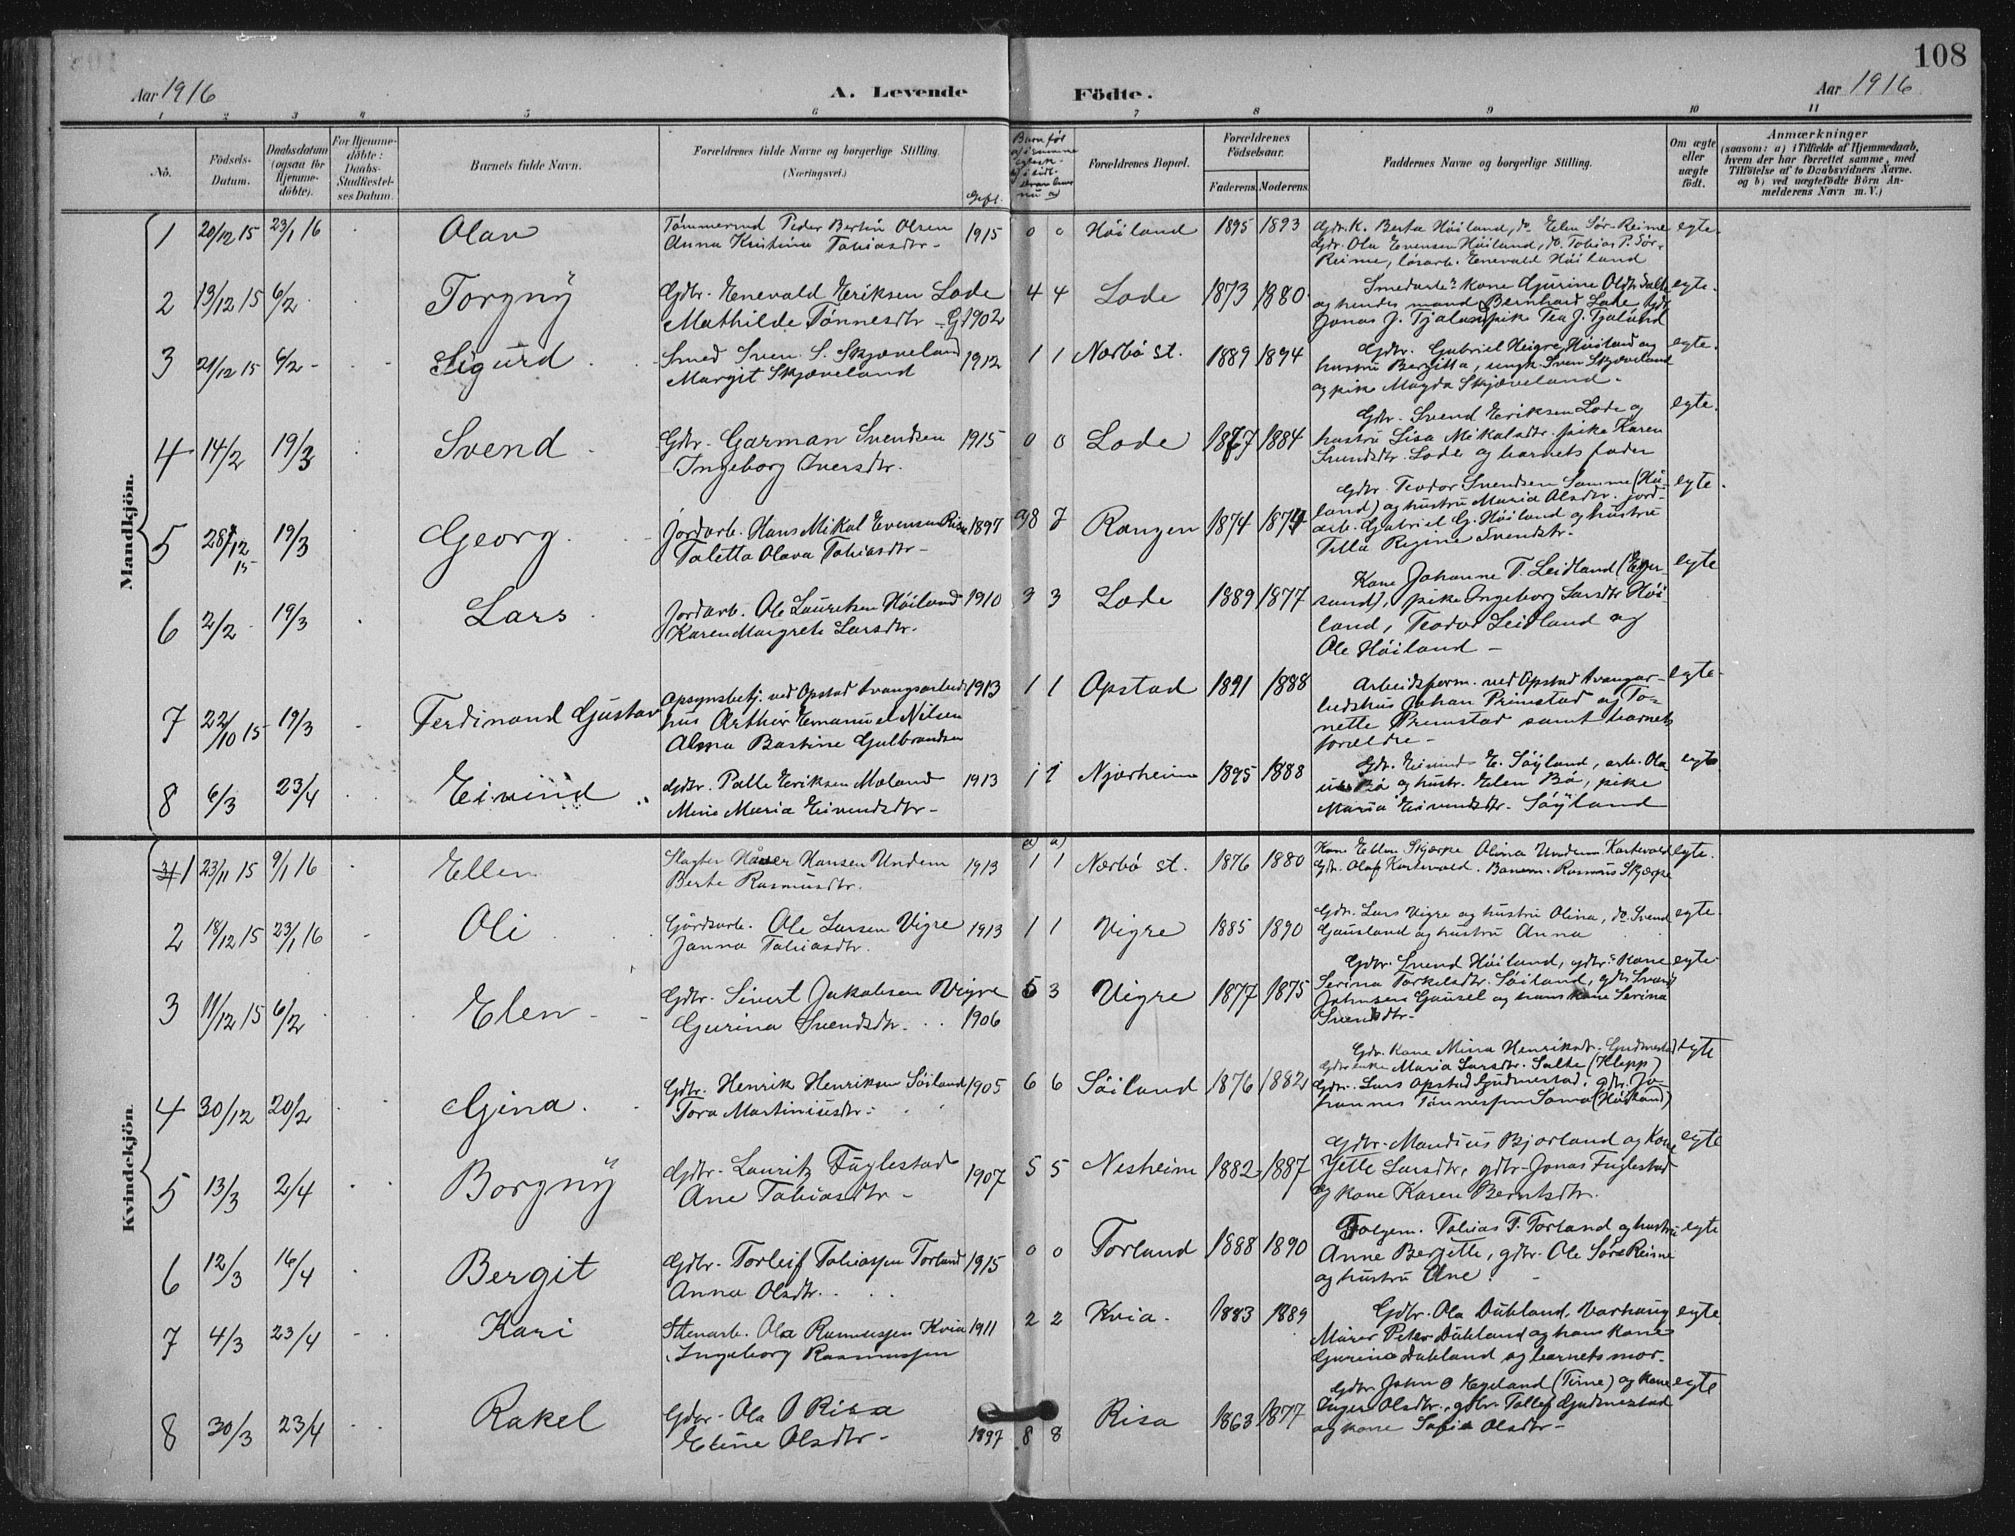 108
Aar 1916
A. Levende
Födte.
Aar 1916
1 2 3 4 5 6 7 8 9 10 11
No.
Födsels-
Datum.
Daabsdatum
(ogsaa for
Hjemme-
döbte).
For Hjemme-
döbte:
Daabs-
Stadfæstel-
ses Datum.
Barnets fulde Navn.
Forældrenes fulde Navne og borgerlige Stilling.
(Næringsvei.)
Gift.
Forældrenes Bopæl.
Forældrenes
Födselsaar.
Faderens. Moderens.
Faddernes Navne og borgerlige Stilling.
Om ægte
eller
uægte
födt.
Anmærkninger
(saasom: a) i Tilfælde af Hjemmedaab,
hvem der har forrettet samme, med
Tilföielse af to Daabsvidners Navne.
og b) ved uægtefödte Börn An-
melderens Navn m. V.)
Mandkjön.
1 20/12 15 23/1 16 Olav
Tømmermd Peder Bertin Olsen
Anna Kristina Tobiasdtr 1915
0 0 Höiland 1895 1893
Gdbr. K. Berta Höiland, do Elen Sör-Reime
Gdbr. Ola Evensen Höiland, do. Tobias P. Sör-
Reime, lösarb. Enevald Höiland
egte
2 13/12 15 6/2 Torgny
Gdbr. Enevald Eriksen Lode
Mathilde Tönnesdtr 1902
4 4 Lode 1873 1880
Smedarb kone Gjurine Oldtr Salte
og hendes mand Bernhard Lode Gdbr
Jonas J. Tjaland pike Tea J. Tjaland
egte.
3 21/12 15 6/2 Sigurd
Smed Sven S. Skjæveland
Margit Skjæveland 1912
1 1 Nærbö st. 1889 1894
Gdbr. Gabriel Heigre, Höiland og
hustru Bergitta, ungk. Sven Skjæveland
og pike Magda Skjæveland.
egte.
4 14/2 19/3 Svend
Gdbr. Garman Svendsen
Ingeborg Iversdtr. 1915
0 0 Lode 1867 1884
Gdbr. Svend Eriksen Lode og
hustru Lisa Mikalsdtr. pike Karen
Svendsdtr. Lode og barnets fader
egte.
5 28/12 15 19/3 Georg
Jordarb. Hans Mikal Evensen Risa
Taletta Olava Tobiasdtr 1897
a) 8 7 Rongen 1874 1874
Gdbr. Teodor Svendsen Somme (Höi-
land) og hustru Maria Olsdtr. jord-
arb. Gabriel G. Höiland og hustru
Tilla Regine Svendsdtr.
egte.
6 2/2 19/3 Lars
Jordarb. Ole Lauritsen Höiland
Karen Margrete Larsdtr. 1910
3 3 Lode 1889 1877
Kone Johanne T. Leidland (Eger
sund), pike Ingeborg Larsdtr Höi-
land, Teodor Leidland og
Ole Höiland
egte
7 22/10 15 19/3 Ferdinand Gustav
Opsynsbetj. ved Opstad tvangsarbeids
hus Arthur Emanuel Nilsen
Alma Bastine Gulbrandsen 1913
1 1 Opstad 1891 1888
Arbeidsform. ved Opstad tvangsar-
beidshus Johan Primstad og To-
nette Primstad samt barnets
forældre
egte
8 6/3 23/4 Eivind
Gdbr. Palle Eriksen Mæland
Mine Maria Eivindsdtr 1913
1 1 Njærheim 1895 1888
Gdbr. Eivind E. Söyland, arb. Ola
Bö og hustr. Elen Bö, pike
Maria Eivindsdtr. Söyland
egte
Kvindekjön.
1 23/11 15 9/1 16 Ellen
Slagter Hansen Undem
Berte Rasmusdtr. 1913
a) a)
1 1 Nærbö st. 1876 1880
Kone Ellen Skjærpe Olina Undem Kartevold
Gdbr. Olaf Kartevold. Banem. Rasmus Skjærpe
egte.
2 18/12 15 23/1 16 Oli
Gårdsarb. Ole Larsen Vigre
Janna Tobiasdtr. 1913
1 1 Vigre 1885 1890
Gdbr. Lars Vigre og hustru Olina, do. Svend
Gausland og hustru Anna
egte.
3 11/12 15 6/2 Elen
Gdbr. Sivert Jakobsen Vigre
Gurina Svendsdtr. 1906
5 3 Vigre 1877 1875
Gdbr. Svend Höiland, gdbr. kone
Serina Torkelsdtr. Söiland, gdbr. Svend
Johnsen Gausel og hans kone Serina
Svendsdtr.
egte.
4 30/12 20/2 Gina
Gdbr. Henrik Henriksen Söiland
Tora Martiniusdtr. 1905
6 6 Söiland 1876 1882
Gdbr. kone Mina Henriksdtr. Gudmestad
Gdbr enke Maria Larsdtr. Salte (Klepp)
Gdbr. Lars Opstad Gudmestad, gdbr. Jo-
hannes Tönnessen Soma (Höiland)
egte
5 13/3 2/4 Borgny
Gdbr. Lauritz Fuglestad
Ane Tobiasdtr 1907
5 5 Nesheim 1882 1887
Gdbr. Mandius Bjorland og kone
Jette Larsdtr, gdbr. Jonas Fuglestad
og kone Karen Berntsdtr.
egte
6 12/3 16/4 Bergit
Gdbr. Torleif Tobiassen Torland
Anna Olsdtr. 1915
0 0 Torland 1888 1890
Folgem. Tobias T. Torland og hustru
Anne Bergitte, gdbr. Ole Söre Reime
og hustru Ane.
egte
7 4/3 23/4 Kari
Stenarb. Ola Rasmussen Kvia
Ingeborg Rasmussen 1911
2 2 Kvia. 1883 1889
Gdbr. Ola Dubland, Varhaug
Murer Peter Dubland og hans kone
Gurine Dubland og barnets mor.
egte
8 30/3 23/4 Rakel
Gdbr. Ola O Risa
Eline Olsdtr 1897
8 8 Risa 1863 1877
Gdbr. John O Hegeland (Time) og kone
Inger Olsdtr., gdbr. Tollef Gudmestad
og kone Sofie Olsdtr
egte